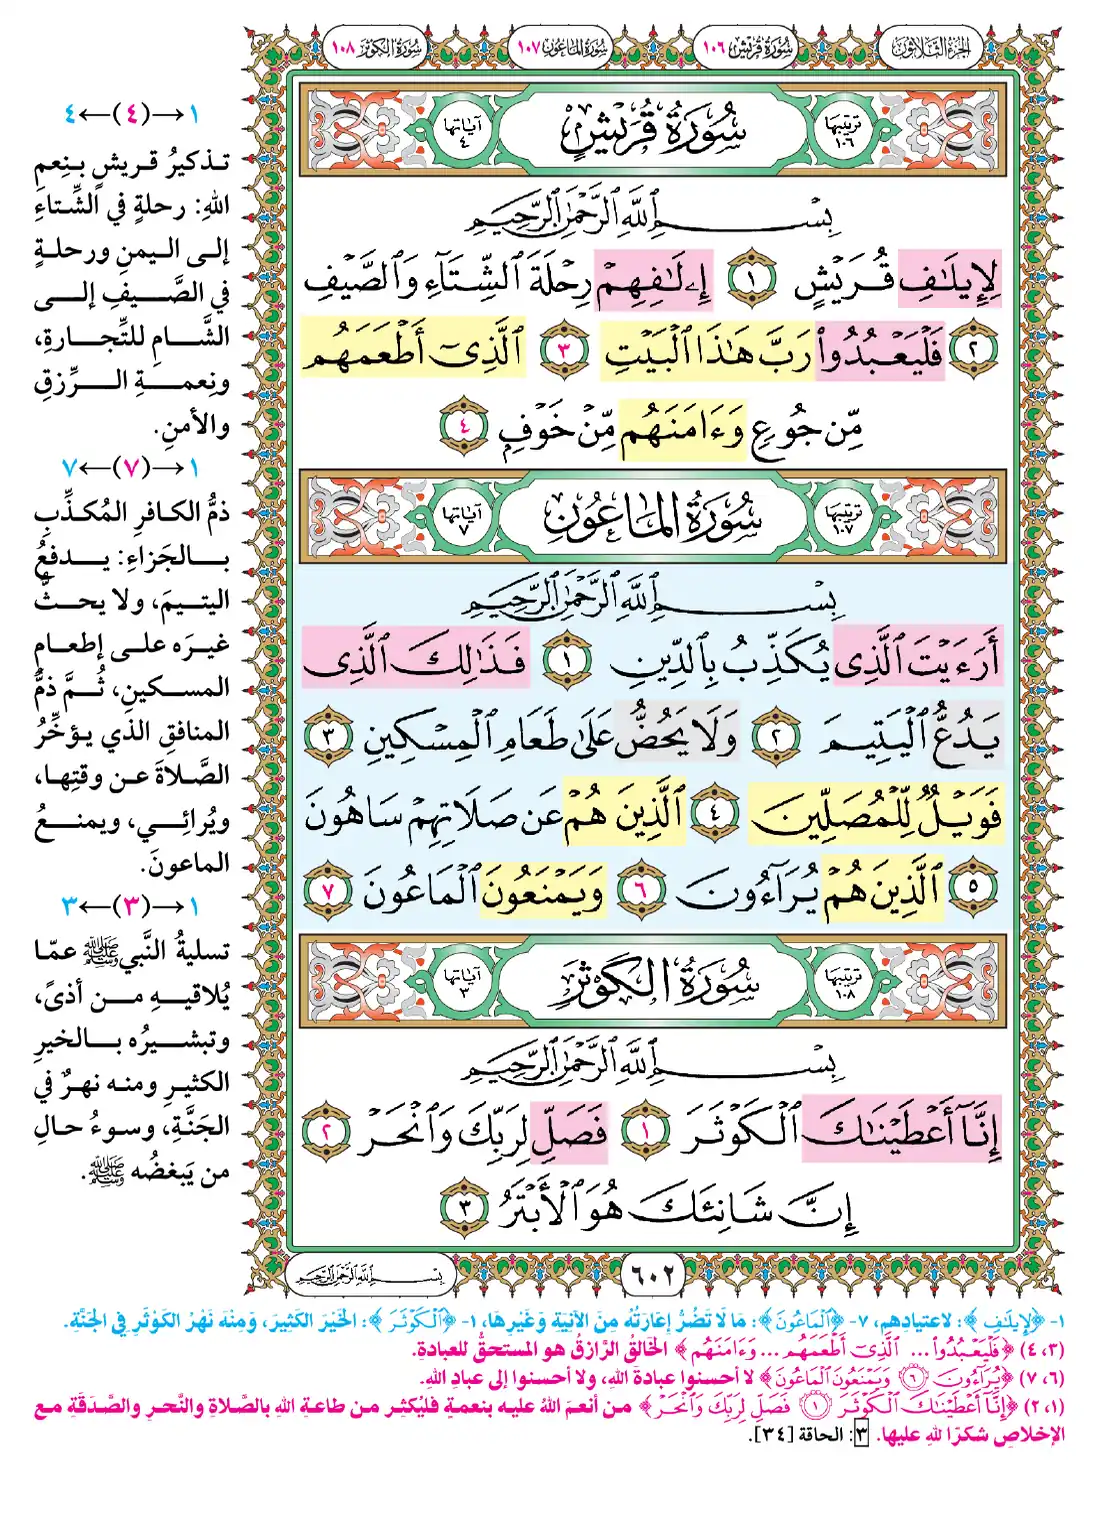 الجزء الثلاثون
سورة قريش ١٠٦
سورة الماعون ١٠٧
سورة الكوثر ١٠٨
ترتيبها ١٠٦
سُورَةُ قُرَيْشٍ
آياتها ٤
بِسْمِ ٱللَّهِ ٱلرَّحْمَٰنِ ٱلرَّحِيمِ
لِإِيلَٰفِ قُرَيْشٍ ١ إِۦلَٰفِهِمْ رِحْلَةَ ٱلشِّتَآءِ وَٱلصَّيْفِ
٢ فَلْيَعْبُدُوا۟ رَبَّ هَٰذَا ٱلْبَيْتِ ٣ ٱلَّذِىٓ أَطْعَمَهُم
مِّن جُوعٍ وَءَامَنَهُم مِّنْ خَوْفٍۭ ٤
ترتيبها ١٠٧
سُورَةُ المَاعُونِ
آياتها ٧
بِسْمِ ٱللَّهِ ٱلرَّحْمَٰنِ ٱلرَّحِيمِ
أَرَءَيْتَ ٱلَّذِى يُكَذِّبُ بِٱلدِّينِ ١ فَذَٰلِكَ ٱلَّذِى
يَدُعُّ ٱلْيَتِيمَ ٢ وَلَا يَحُضُّ عَلَىٰ طَعَامِ ٱلْمِسْكِينِ ٣
فَوَيْلٌ لِّلْمُصَلِّينَ ٤ ٱلَّذِينَ هُمْ عَن صَلَاتِهِمْ سَاهُونَ
٥ ٱلَّذِينَ هُمْ يُرَآءُونَ ٦ وَيَمْنَعُونَ ٱلْمَاعُونَ ٧
ترتيبها ١٠٨
سُورَةُ الكَوْثَرِ
آياتها ٣
بِسْمِ ٱللَّهِ ٱلرَّحْمَٰنِ ٱلرَّحِيمِ
إِنَّآ أَعْطَيْنَٰكَ ٱلْكَوْثَرَ ١ فَصَلِّ لِرَبِّكَ وَٱنْحَرْ ٢
إِنَّ شَانِئَكَ هُوَ ٱلْأَبْتَرُ ٣
١→(٤)←٤
تذكيرُ قريشٍ بنِعمِ
اللهِ: رحلةٍ في الشِّتاءِ
إلى اليمنِ ورحلةٍ
في الصَّيفِ إلى
الشَّامِ للتِّجارةِ،
ونعمةِ الرِّزقِ
والأمنِ.
١→(٧)←٧
ذمُّ الكافرِ المُكذِّبِ
بالجَزاءِ: يدفعُ
اليتيمَ، ولا يحثُّ
غيرَه على إطعامِ
المسكينِ، ثُمَّ ذمُّ
المنافقِ الذي يؤخِّرُ
الصَّلاةَ عن وقتِها،
ويُرائي، ويمنعُ
الماعونَ.
١→(٣)←٣
تسليةُ النَّبي ﷺ عمَّا
يُلاقيهِ من أذىً،
وتبشيرُه بالخيرِ
الكثيرِ ومنه نهرٌ في
الجَنَّةِ، وسوءُ حالِ
من يَبغضُه ﷺ.
٦٠٢
بِسْمِ ٱللَّهِ ٱلرَّحْمَٰنِ ٱلرَّحِيمِ
١- ﴿لِإِيلَٰفِ﴾: لاعتيادِهِم، ٧- ﴿ٱلْمَاعُونَ﴾: مَا لَا تَضُرُّ إِعَارَتُهُ مِنَ الآنِيَةِ وَغَيْرِهَا، ١- ﴿ٱلْكَوْثَرَ﴾: الخَيْرَ الكَثِيرَ، وَمِنْهُ نَهْرُ الكَوْثَرِ فِي الجَنَّةِ.
(٣، ٤) ﴿فَلْيَعْبُدُوا۟ ... ٱلَّذِىٓ أَطْعَمَهُم ... وَءَامَنَهُم﴾ الخالقُ الرَّازقُ هو المستحقُّ للعبادةِ.
(٦، ٧) ﴿يُرَآءُونَ ٦ وَيَمْنَعُونَ ٱلْمَاعُونَ﴾ لا أحسنوا عبادةَ اللهِ، ولا أحسنوا إلى عبادِ اللهِ.
(١، ٢) ﴿إِنَّآ أَعْطَيْنَٰكَ ٱلْكَوْثَرَ ١ فَصَلِّ لِرَبِّكَ وَٱنْحَرْ﴾ من أنعمَ اللهُ عليه بنعمةٍ فليُكثِر من طاعةِ اللهِ بالصَّلاةِ والنَّحرِ والصَّدَقَةِ مع
الإخلاصِ شكرًا للهِ عليها. ٣: الحاقة [٣٤].